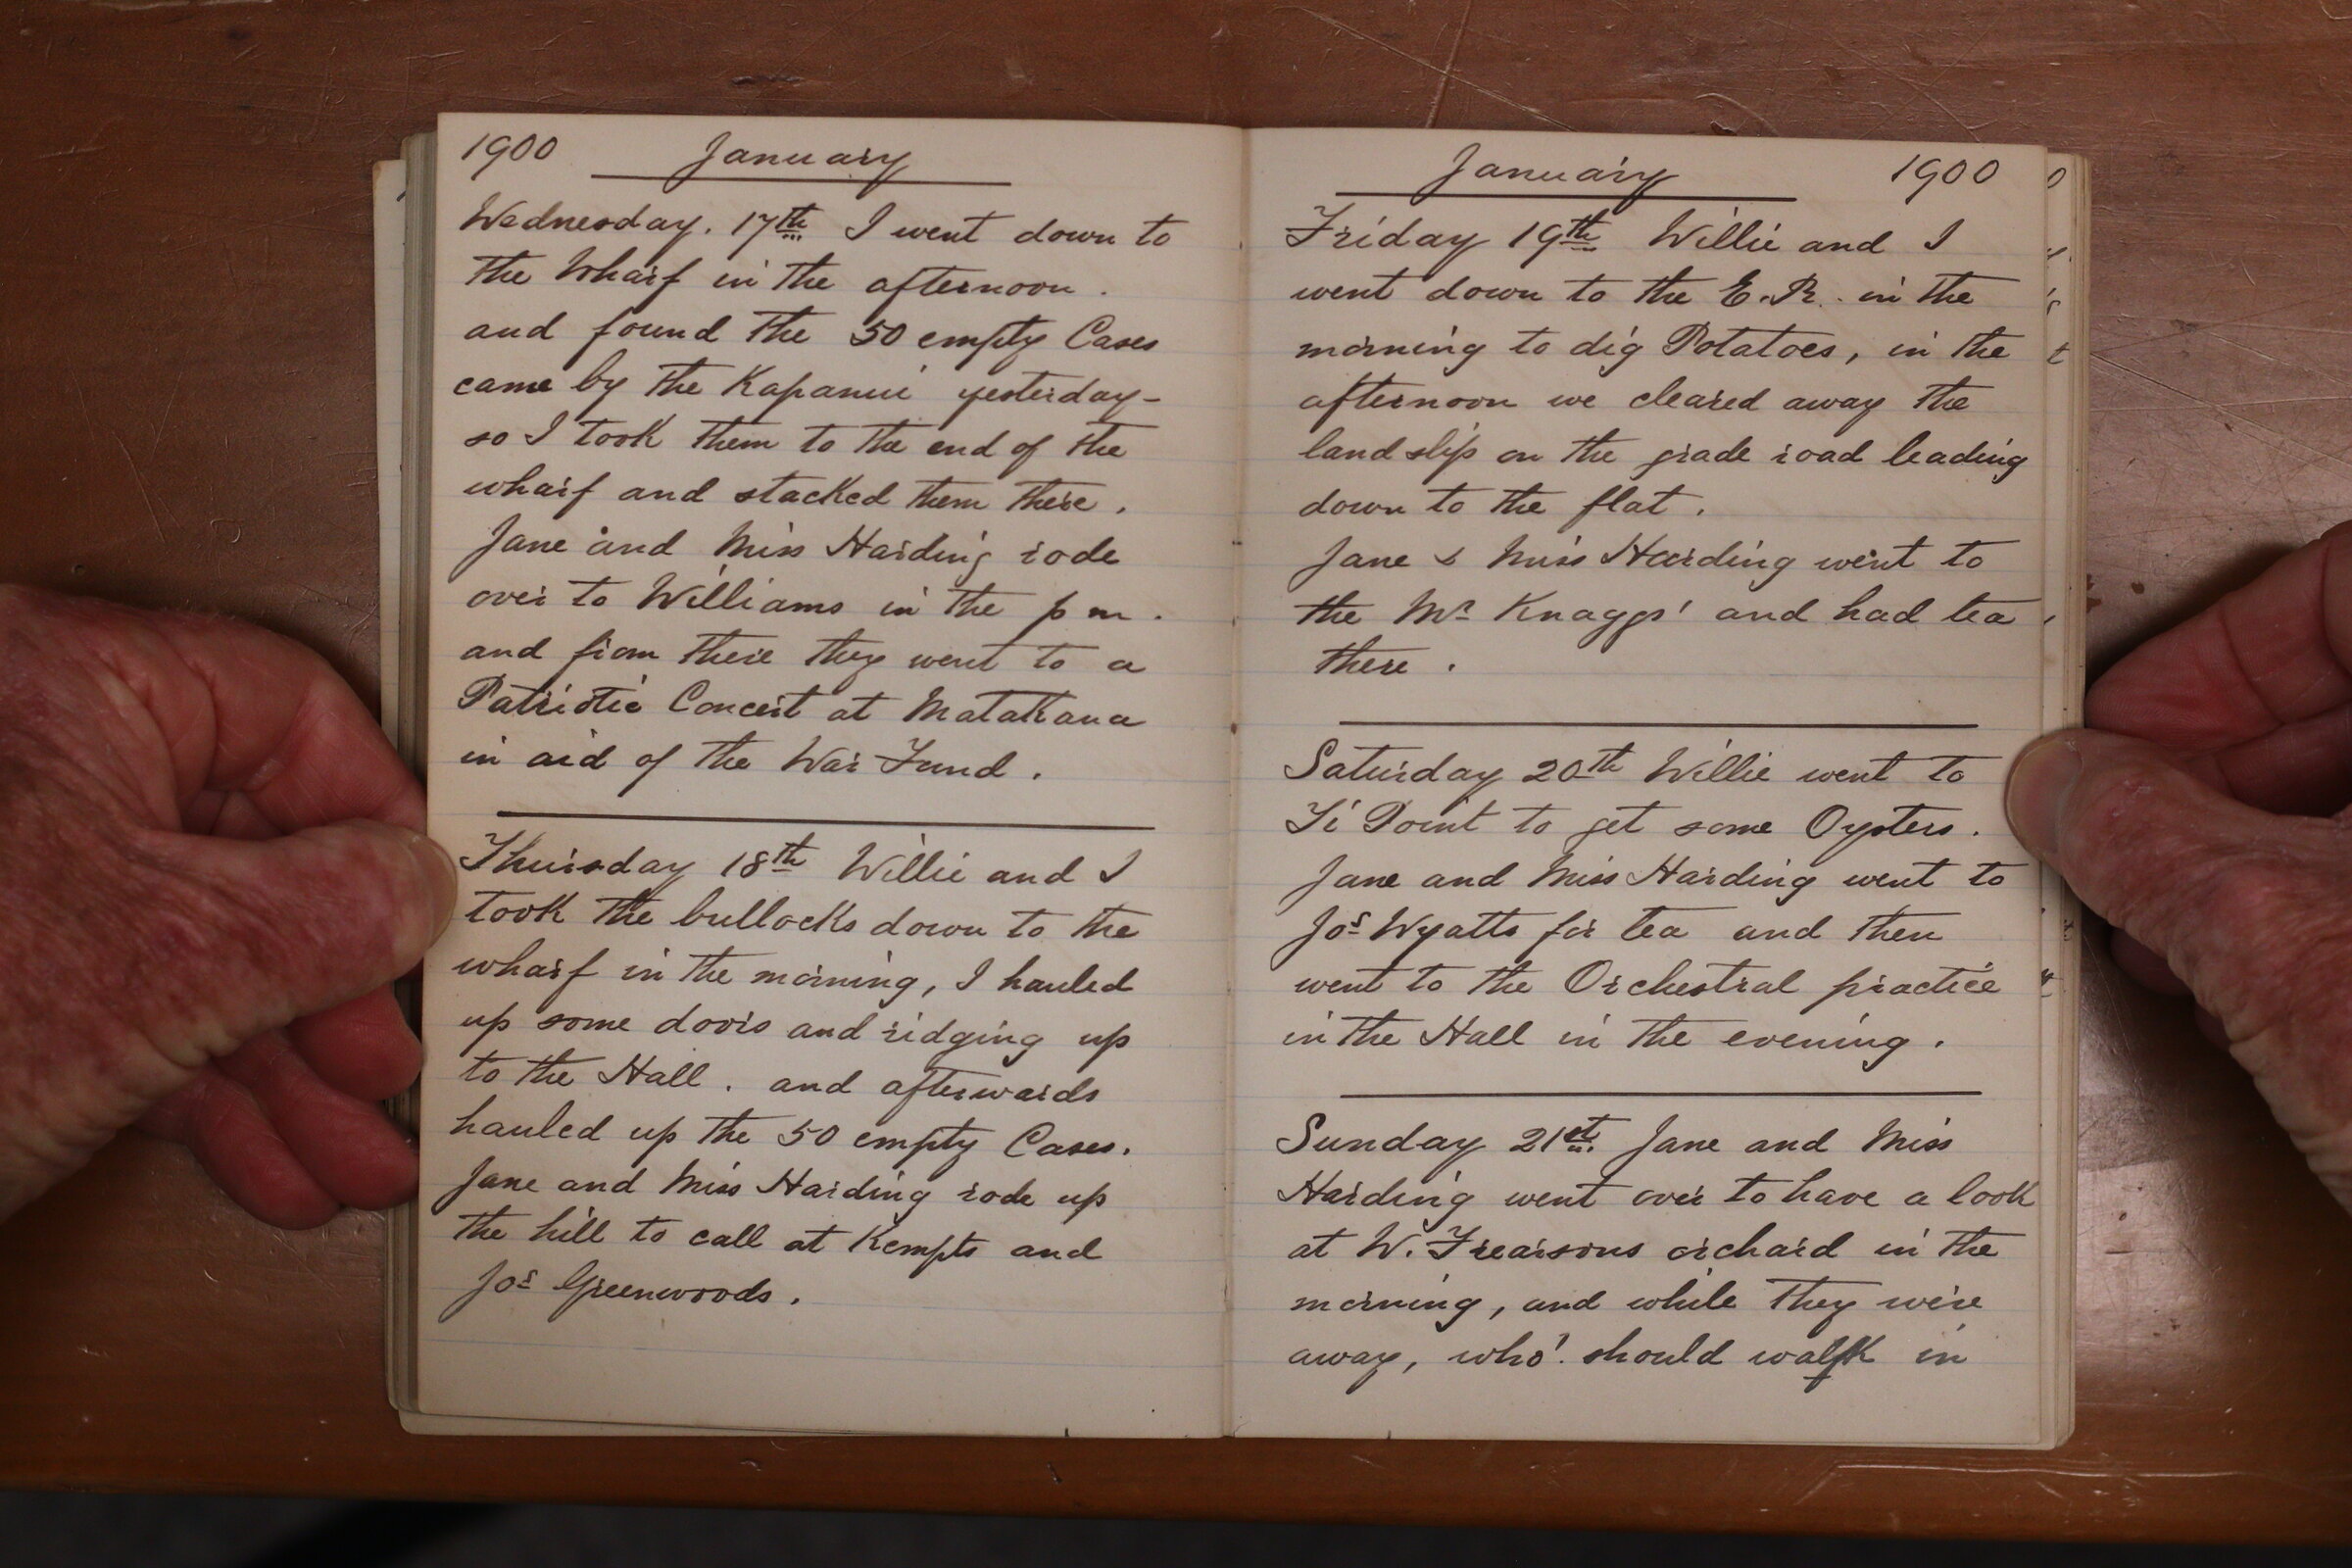 1900 January
Wednesday. 17th I went down to
the Wharf in the afternoon.
and found the 50 empty Cases
came by the Kapanui yesterday-
so I took them to the end of the
wharf and stacked them there.
Jane and Miss Harding rode
over to Williams in the pm.
and from there they went to a
Patriotic Concert at Matakana
in aid of the War Fund.
Thursday 18th Willie and I
took the bullocks down to the
wharf in the morning, I hauled
up some doors and ridging up
to the Hall. and afterwards
hauled up the 50 empty Cases.
Jane and Miss Harding rode up
the hill to call at Kempts and
Jos Greenwoods.
January 1900
Friday 19th Willie and I
went down to the E.R. in the
morning to dig Potatoes, in the
afternoon we cleared away the
land slip on the grade road leading
down to the flat.
Jane & Miss Harding went to
the Mr Knaggs' and had tea
there.
Saturday 20th Willie went to
Ti Point to get some Oysters.
Jane and Miss Harding went to
Jos Wyatts for tea and then
went to the Orchestral practice
in the Hall in the evening.
Sunday 21st Jane and Miss
Harding went over to have a look
at W. Frearsons orchard in the
morning, and while they were
away, who! should walk in